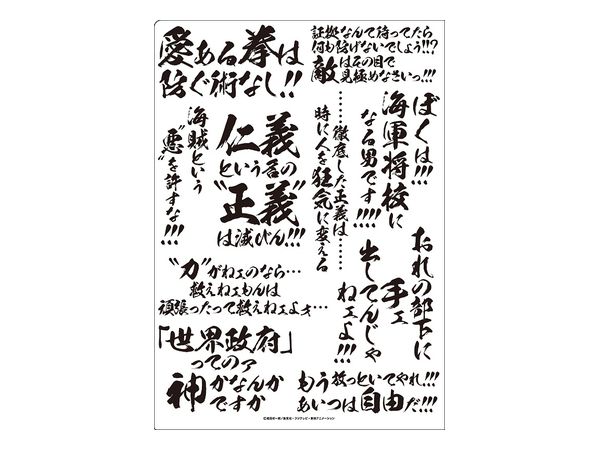 愛ある拳は
防ぐ術なし!!
証拠なんて待ってたら
何も防げないでしょう!!?
敵はその目で
見極めなさいっ!!!
ぼくは!!!
海軍将校に
なる男です!!!!
……徹底した正義は……
時に人を狂気に変える
仁義
という名の
“正義”
は滅びん!!!
海賊という
“悪”を許すな!!!
おれの部下に
手ェ
出してんじゃ
ねェよ!!!
“力”がねェのなら…
救えねェもんは
頑張ったって救えねェよォ…
「世界政府」
ってのァ
神かなんか
ですか
もう放っといてやれ!!!
あいつは自由だ!!!
©尾田栄一郎／集英社・フジテレビ・東映アニメーション